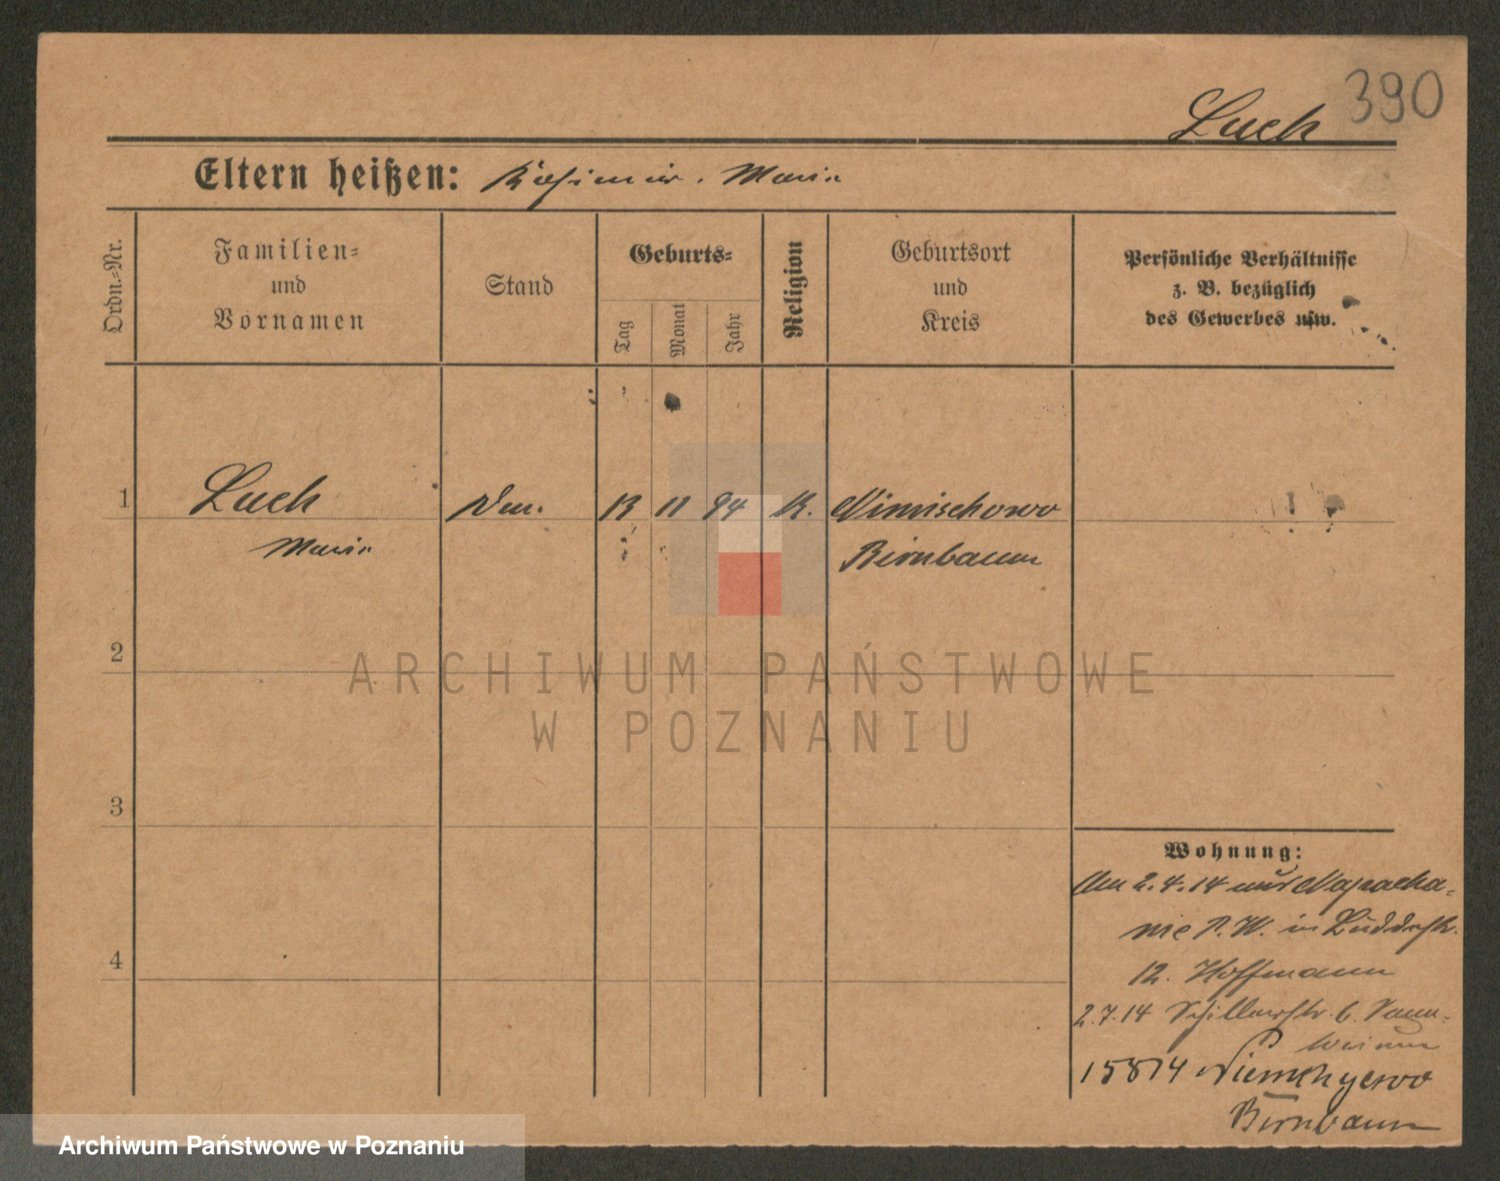 390
Luch
Eltern heißen: Kasimir. Maria
Ordn.=Nr.
Familien=
und
Vornamen
Stand
Geburts=
Tag
Monat
Jahr
Religion
Geburtsort
und
Kreis
Persönliche Verhältnisse
z. B. bezüglich
des Gewerbes usw.
1
Luch
13 11 94 K.
Maria
Birnbaum
2
3
4
Wohnung:
Am 2.4.14 aus
in
12. Hoffmann
2.7.14 Schillerstr. 6.
15814
Birnbaum
ARCHIWUM PAŃSTWOWE
W POZNANIU
Archiwum Państwowe w Poznaniu